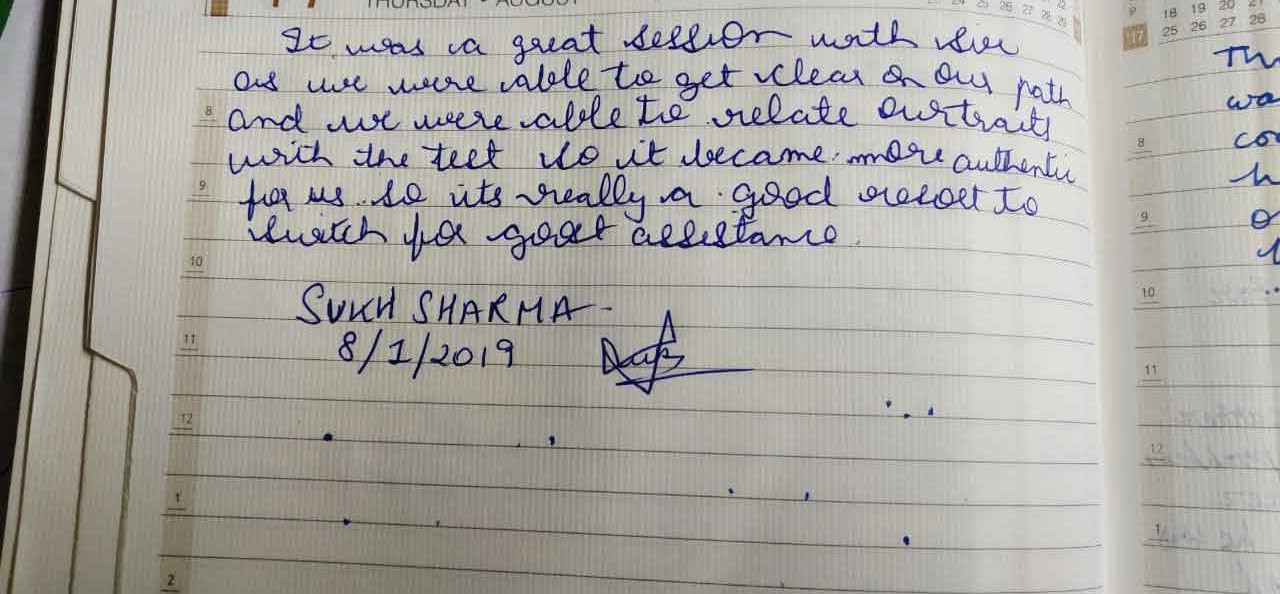 THURSDAY - AUGUST
It was a great session with sir
as we were able to get clear on our path
and we were able to relate our traits
with the test so it became more authentic
for us. so its really a good resort to
switch for good assistance.
SUKH SHARMA -
8/1/2019
8
9
10
11
12
1
2
17
18 19 20 21
25 26 27 28
Th
wa
co
h
o
8
9
10
11
12
1